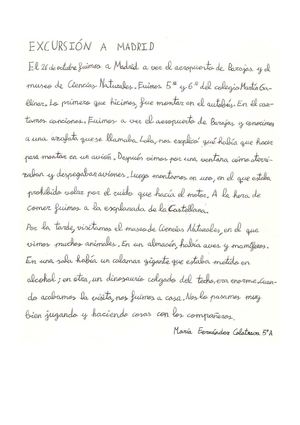 EXCURSIÓN A MADRID
El 26 de octubre fuimos a Madrid a ver el aeropuerto de Barajas y el
museo de Ciencias Naturales. Fuimos 5º y 6º del colegio Martín Ga-
llinar. Lo primero que hicimos, fue montar en el autobús. En él can-
tamos canciones. Fuimos a ver el aeropuerto de Barajas y conocimos
a una azafata que se llamaba Lola, nos explicó qué había que hacer
para montar en un avión. Después vimos por una ventana cómo aterri-
zaban y despegaban aviones. Luego montamos en uno, en el que estaba
prohibido volar por el ruido que hacía el motor. A la hora de
comer fuimos a la explanada de la Castellana.
Por la tarde, visitamos el museo de Ciencias Naturales, en el que
vimos muchos animales. En un almacén, había aves y mamíferos.
En una sala había un calamar gigante que estaba metido en
alcohol; en otra, un dinosaurio colgado del techo, era enorme. Cuan-
do acabamos la visita, nos fuimos a casa. Nos lo pasamos muy
bien jugando y haciendo cosas con los compañeros.
María Fernández Calatrava 5ºA